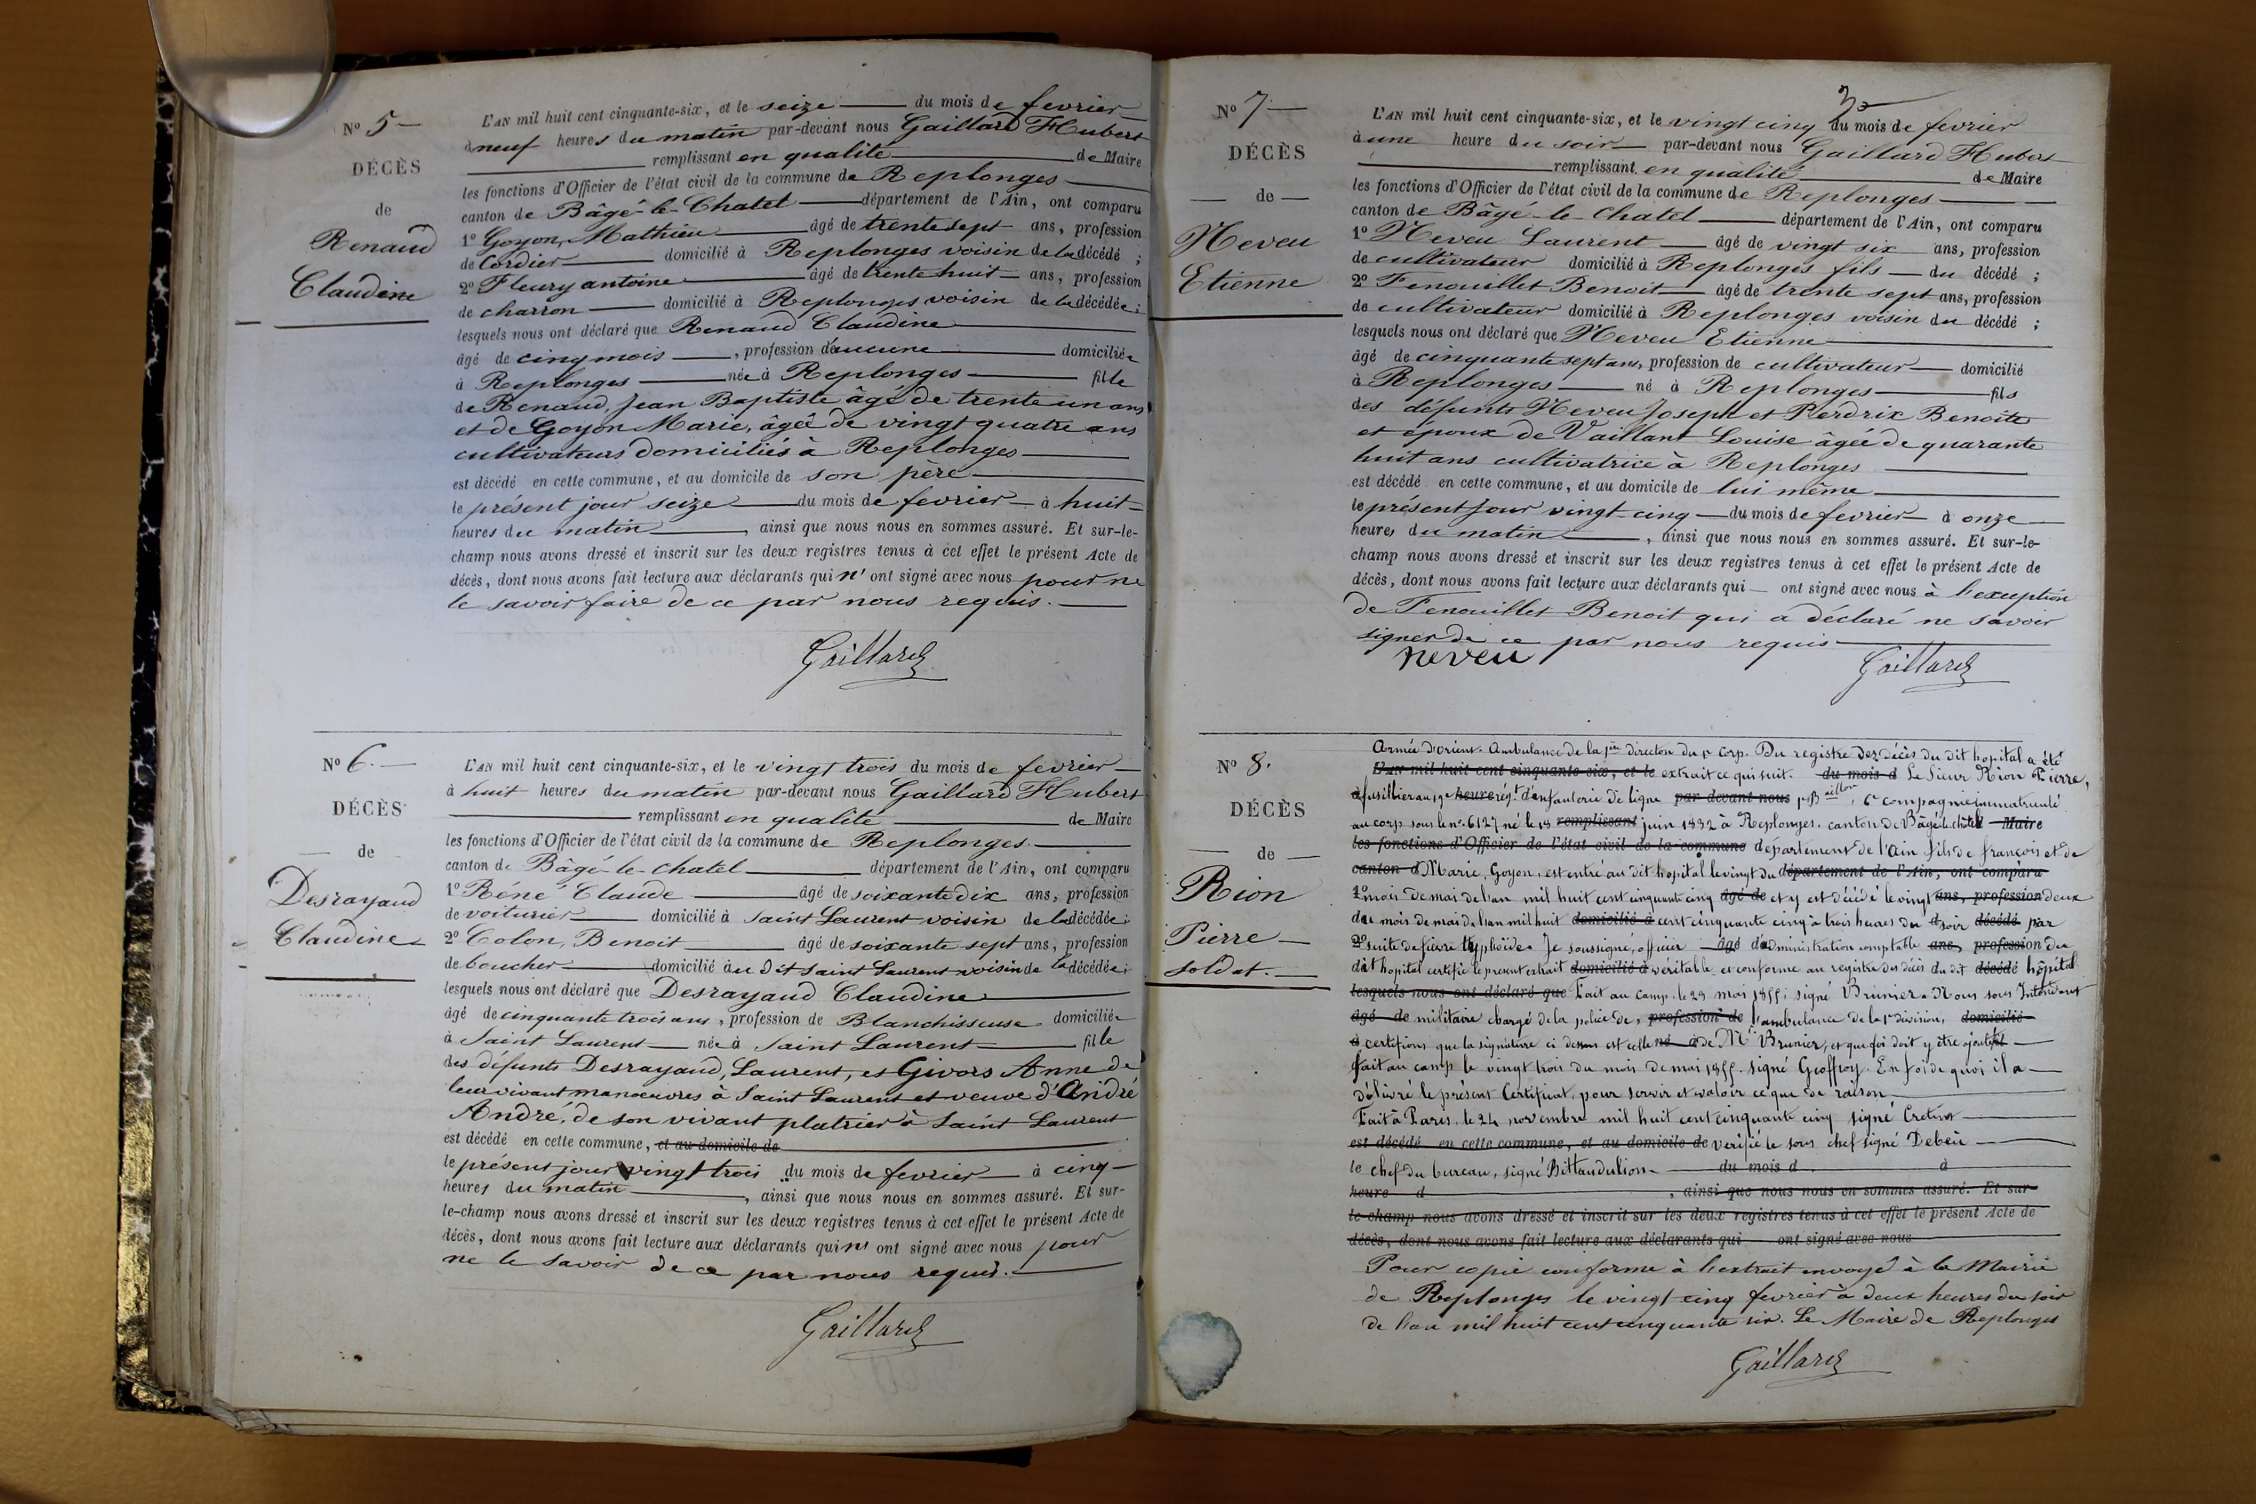 N° 5
DÉCÈS
de
Renaud
Claudine
L'AN mil huit cent cinquante-six, et le seize du mois de fevrier
à neuf heures du matin par-devant nous Gaillard Hubert
remplissant en qualité de Maire
les fonctions d'Officier de l'état civil de la commune de Replonges
canton de Bâgé-le-Chatel département de l'Ain, ont comparu
1° Goyon, Mathieu âgé de trente sept ans, profession
de Cordier domicilié à Replonges voisin de la décédé ;
2° Fleury antoine âgé de trente huit ans, profession
de charron domicilié à Replonges voisin de la décédée ;
lesquels nous ont déclaré que Renaud Claudine
âgé de cinq mois, profession d'aucune domiciliée
à Replonges née à Replonges fille
de Renaud, Jean Baptiste âgé de trente un ans
et de Goyon Marie, âgée de vingt quatre ans
cultivateurs domiciliés à Replonges
est décédé en cette commune, et au domicile de son père
le présent jour seize du mois de fevrier à huit
heures du matin, ainsi que nous nous en sommes assuré. Et sur-le-
champ nous avons dressé et inscrit sur les deux registres tenus à cet effet le présent Acte de
décès, dont nous avons fait lecture aux déclarants qui n'ont signé avec nous pour ne
le savoir faire de ce par nous requis.
Gaillard
N° 6.
DÉCÈS
de
Desrayaud
Claudine
L'AN mil huit cent cinquante-six, et le vingt trois du mois de fevrier
à huit heures du matin par-devant nous Gaillard Hubert
remplissant en qualité de Maire
les fonctions d'Officier de l'état civil de la commune de Replonges
canton de Bâgé-le-chatel département de l'Ain, ont comparu
1° Réné Claude âgé de soixante dix ans, profession
de voiturier domicilié à Saint Laurent voisin de la décédée ;
2° Colon, Benoit âgé de soixante sept ans, profession
de boucher domicilié au dit Saint Laurent voisin de la décédée ;
lesquels nous ont déclaré que Desrayaud Claudine
âgé de cinquante trois ans, profession de Blanchisseuse domiciliée
à Saint Laurent née à Saint Laurent fille
des défunts Desrayaud, Laurent, et Givors Anne de
leur vivant manoeuvres à Saint Laurent et veuve d'André
André, de son vivant platrier à Saint Laurent
est décédé en cette commune, et au domicile de
le présent jour vingt trois du mois de fevrier à cinq
heures du matin, ainsi que nous nous en sommes assuré. Et sur-
le-champ nous avons dressé et inscrit sur les deux registres tenus à cet effet le présent Acte de
décès, dont nous avons fait lecture aux déclarants qui n'ont signé avec nous pour
ne le savoir de ce par nous requis.
Gaillard
N° 7
DÉCÈS
de
Neveu
Etienne
L'AN mil huit cent cinquante-six, et le vingt cinq du mois de fevrier
à une heure du soir par-devant nous Gaillard Hubert
remplissant en qualité de Maire
les fonctions d'Officier de l'état civil de la commune de Replonges
canton de Bâgé-le-Chatel département de l'Ain, ont comparu
1° Neveu Laurent âgé de vingt six ans, profession
de cultivateur domicilié à Replonges fils du décédé ;
2° Fenouillet Benoit âgé de trente sept ans, profession
de cultivateur domicilié à Replonges voisin du décédé ;
lesquels nous ont déclaré que Neveu Etienne
âgé de cinquante sept ans, profession de cultivateur domicilié
à Replonges né à Replonges fils
des défunts Neveu Joseph et Perdrix Benoite
et époux de Vaillant Louise âgée de quarante
huit ans cultivatrice à Replonges
est décédé en cette commune, et au domicile de lui même
le présent jour vingt-cinq du mois de fevrier à onze
heures du matin, ainsi que nous nous en sommes assuré. Et sur-le-
champ nous avons dressé et inscrit sur les deux registres tenus à cet effet le présent Acte de
décès, dont nous avons fait lecture aux déclarants qui ont signé avec nous à l'exception
de Fenouillet Benoit qui a déclaré ne savoir
signer de ce par nous requis
neveu Gaillard
N° 8.
DÉCÈS
de
Rion
Pierre
soldat.
Armée d'orient. Ambulance de la 1ère division du 1r Corp. Du registre des décès du dit hopital a été
L'AN mil huit cent cinquante-six, et le extrait ce qui suit. du mois d Le Sieur Rion Pierre,
à fusillier au 19e heure régt d'infanterie de ligne par-devant nous 1r Baillon, 6e compagnie immatriculé
au corp sous le n° 6127 né le 18 remplissant juin 1832 à Replonges. canton de Bâgé-le-châtel Maire
les fonctions d'Officier de l'état civil de la commune departement de l'Ain fils de françois et de
canton d Marie, Goyon, est entré au dit hopital le vingt du département de l'Ain, ont comparu
1° mois de mai de l'an mil huit cent cinquante cinq âgé de et y est décédé le vingt ans, profession deux
du mois de mai de l'an mil huit domicilié à cent cinquante cinq à trois heures du soir décédé par
2° suite de fièvre typhoïde. Je soussigné, officier âgé d'administration comptable ans, profession du
dit hopital certifie le present extrait domicilié à véritable et conforme au registre des décès du dit décédé hôpital
lesquels nous ont déclaré que Fait au camp. le 23 mai 1855 ; signé Brunier. Nous sous Intendant
âgé de militaire chargé de la police de, profession de l'ambulance de la 1e division, domicilié
à certifions que la signature ci dessus est celle né à de Mr Brunier, et que foi doit y être ajoutée
fait au camp le vingt trois du mois de mai 1855. signé Geoffroy. En foi de quoi il a
délivré le présent Certificat, pour servir et valoir ce que de raison
Fait à Paris. le 24 novembre mil huit cent cinquante cinq signé Cretin
est décédé en cette commune, et au domicile de verifié le sous chef signé Debeu
le chef du bureau, signé du mois d à
heure d, ainsi que nous nous en sommes assuré. Et sur-
le-champ nous avons dressé et inscrit sur les deux registres tenus à cet effet le présent Acte de
décès, dont nous avons fait lecture aux déclarants qui ont signé avec nous
Pour copie conforme à l'extrait envoyé à la Mairie
de Replonges le vingt cinq fevrier à deux heures du soir
de l'an mil huit cent cinquante six. Le Maire de Replonges
Gaillard